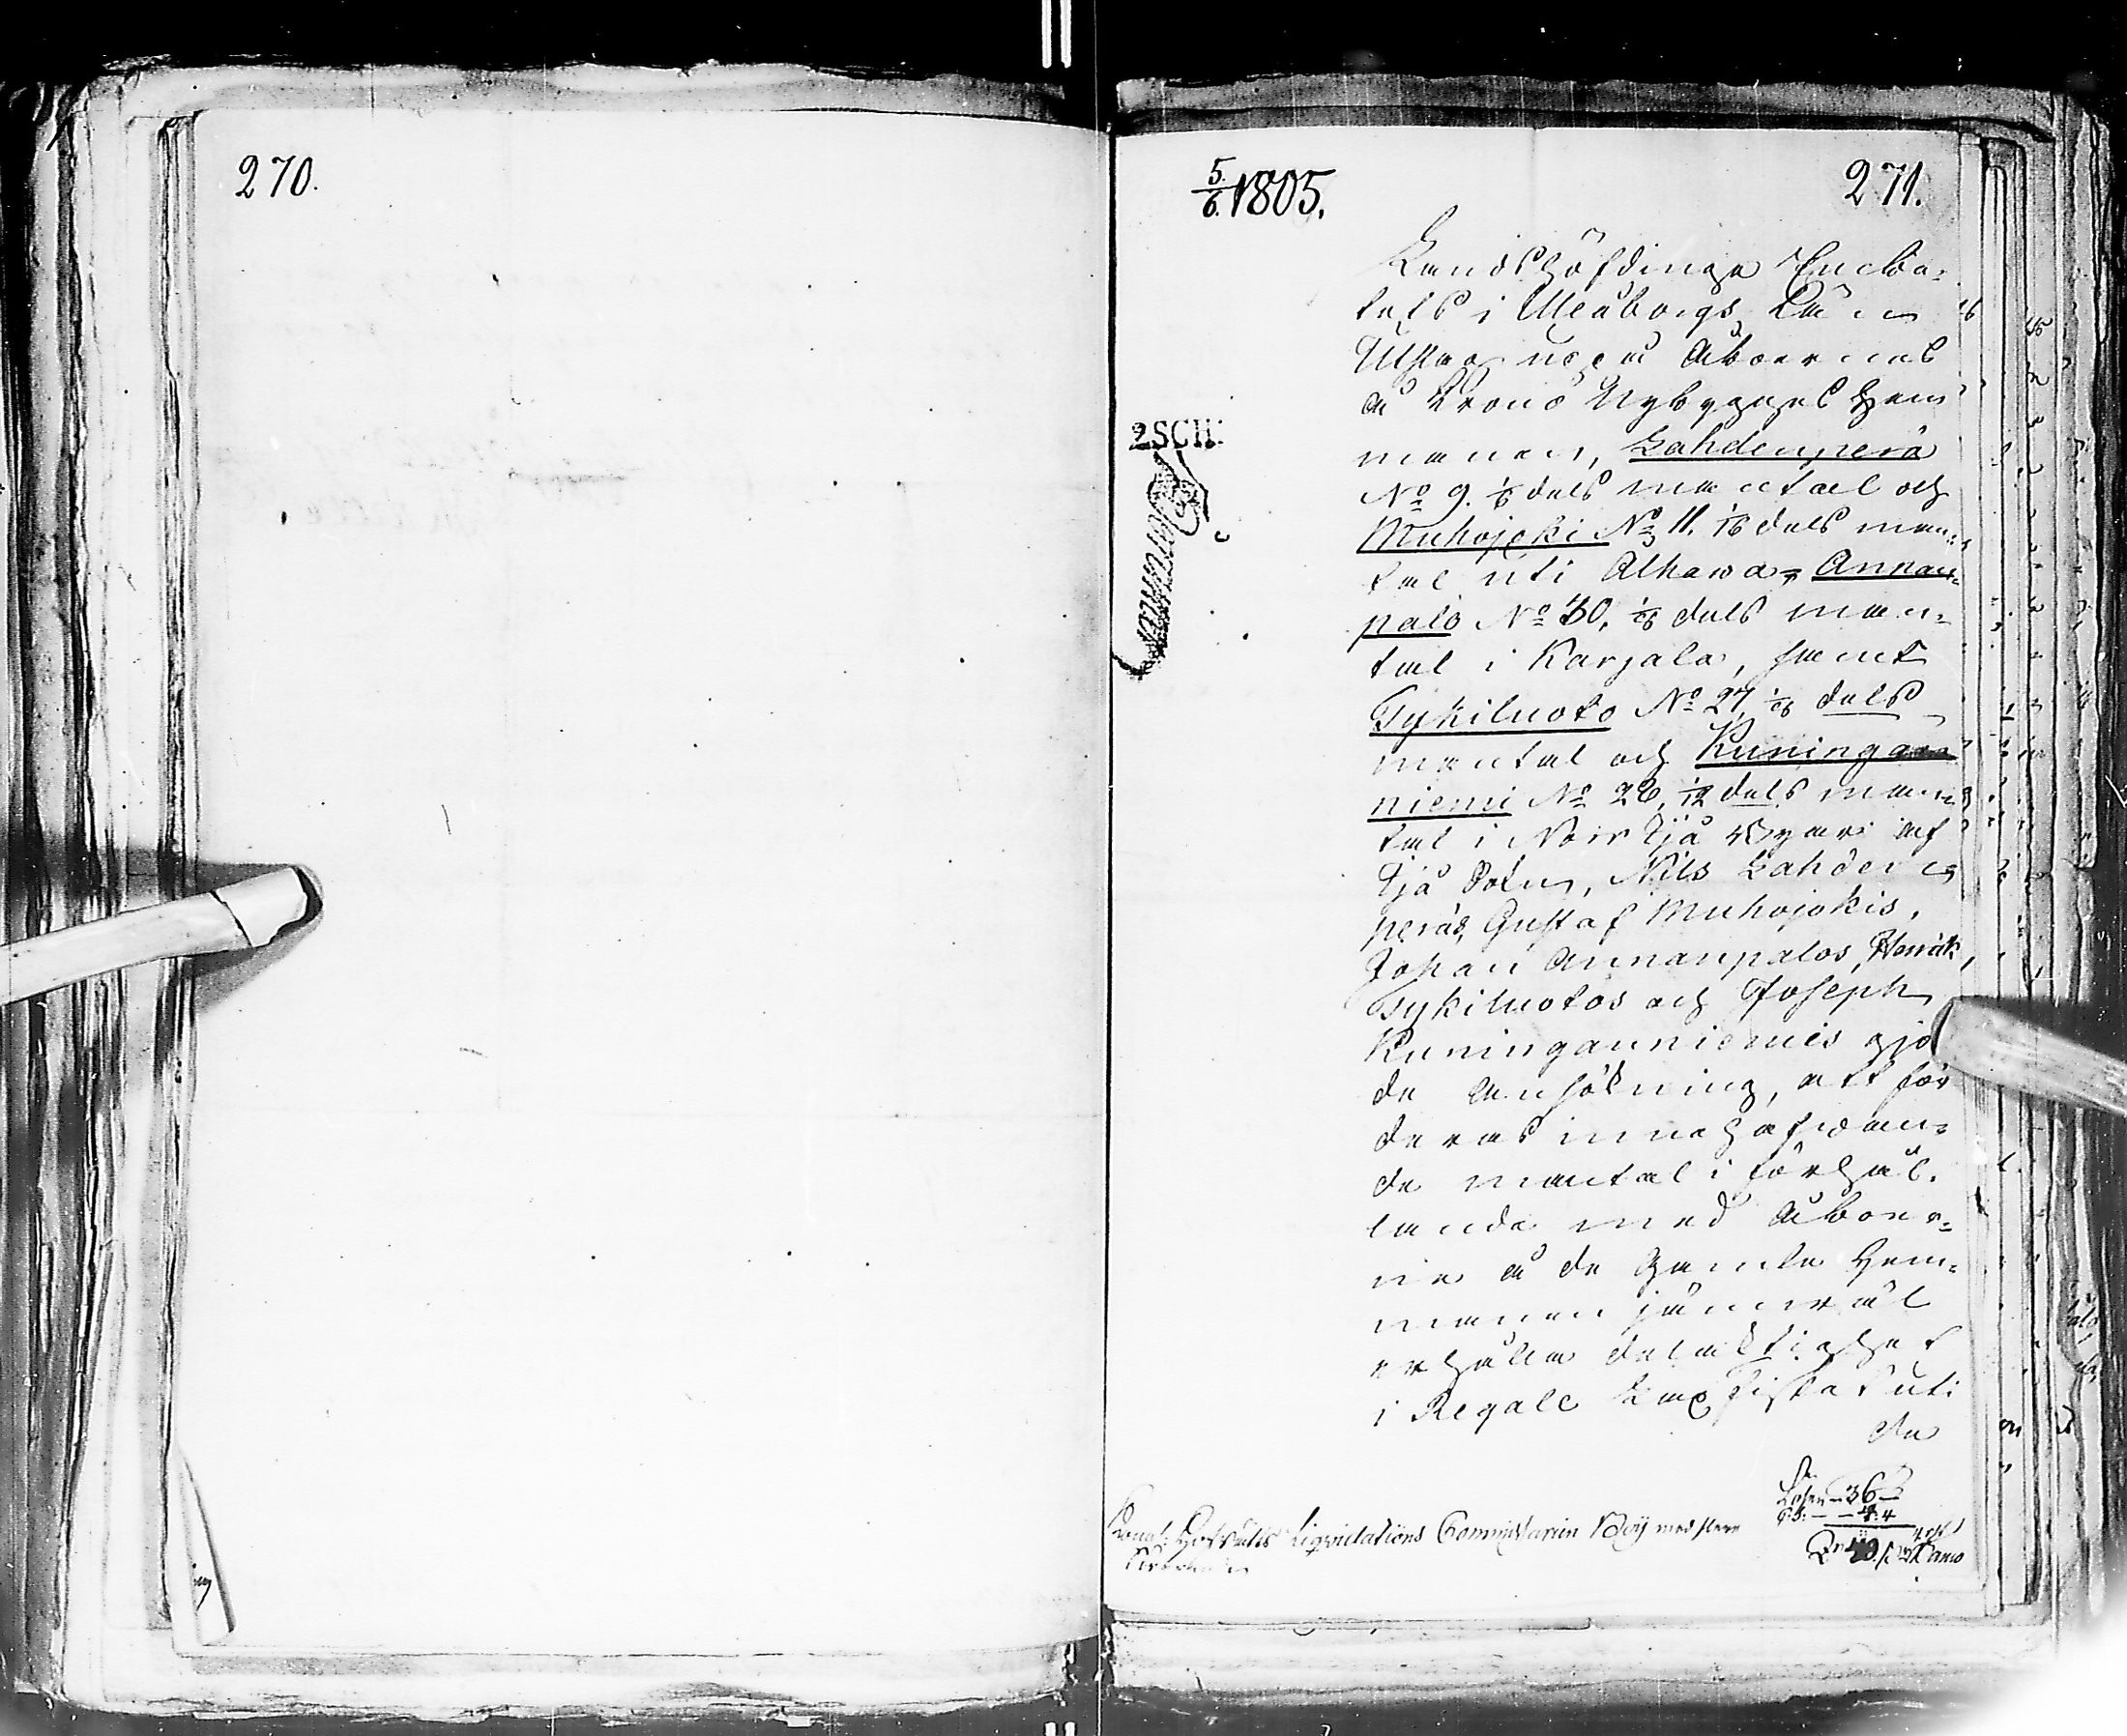 270.
5/6. 1805.
271.
Landshöfdinge Embe-
tets i Uleåborgs Län
Utslag uppå Åboernes
å Krono Nybygges Hem
manen, Lahdenperä
No 9. 1/6 dels mantal och
Muhojoki No 11. 1/16 dels man-
tal uti Alhawa, Annan-
palo No 30, 1/16 dels man-
tal i Karjala, samt
Tykiluoto No 27 1/16 dels
mantal och Kuningan
niemi No 28, 1/12 dels man-
tal i Norr Ijå Byar af
Ijå Sokn, Nils Lahden-
peräs, Gustaf Muhojokis,
Johan Annanpalos, Henrik
Tykiluotos och Joseph
Kuninganniemis gjor
de ansökning, att för
deras innehafwan-
de mantal i förhål-
lande med Åboer-
ne å de gamla Hem-
manen jämwäl
erhålla delaktighet
i Regale Lax fisket uti
de
2 SCH:
Lösen - 36
4: 4
Kongl. Hofrätts Liqvidations Commissarien Boij med flere